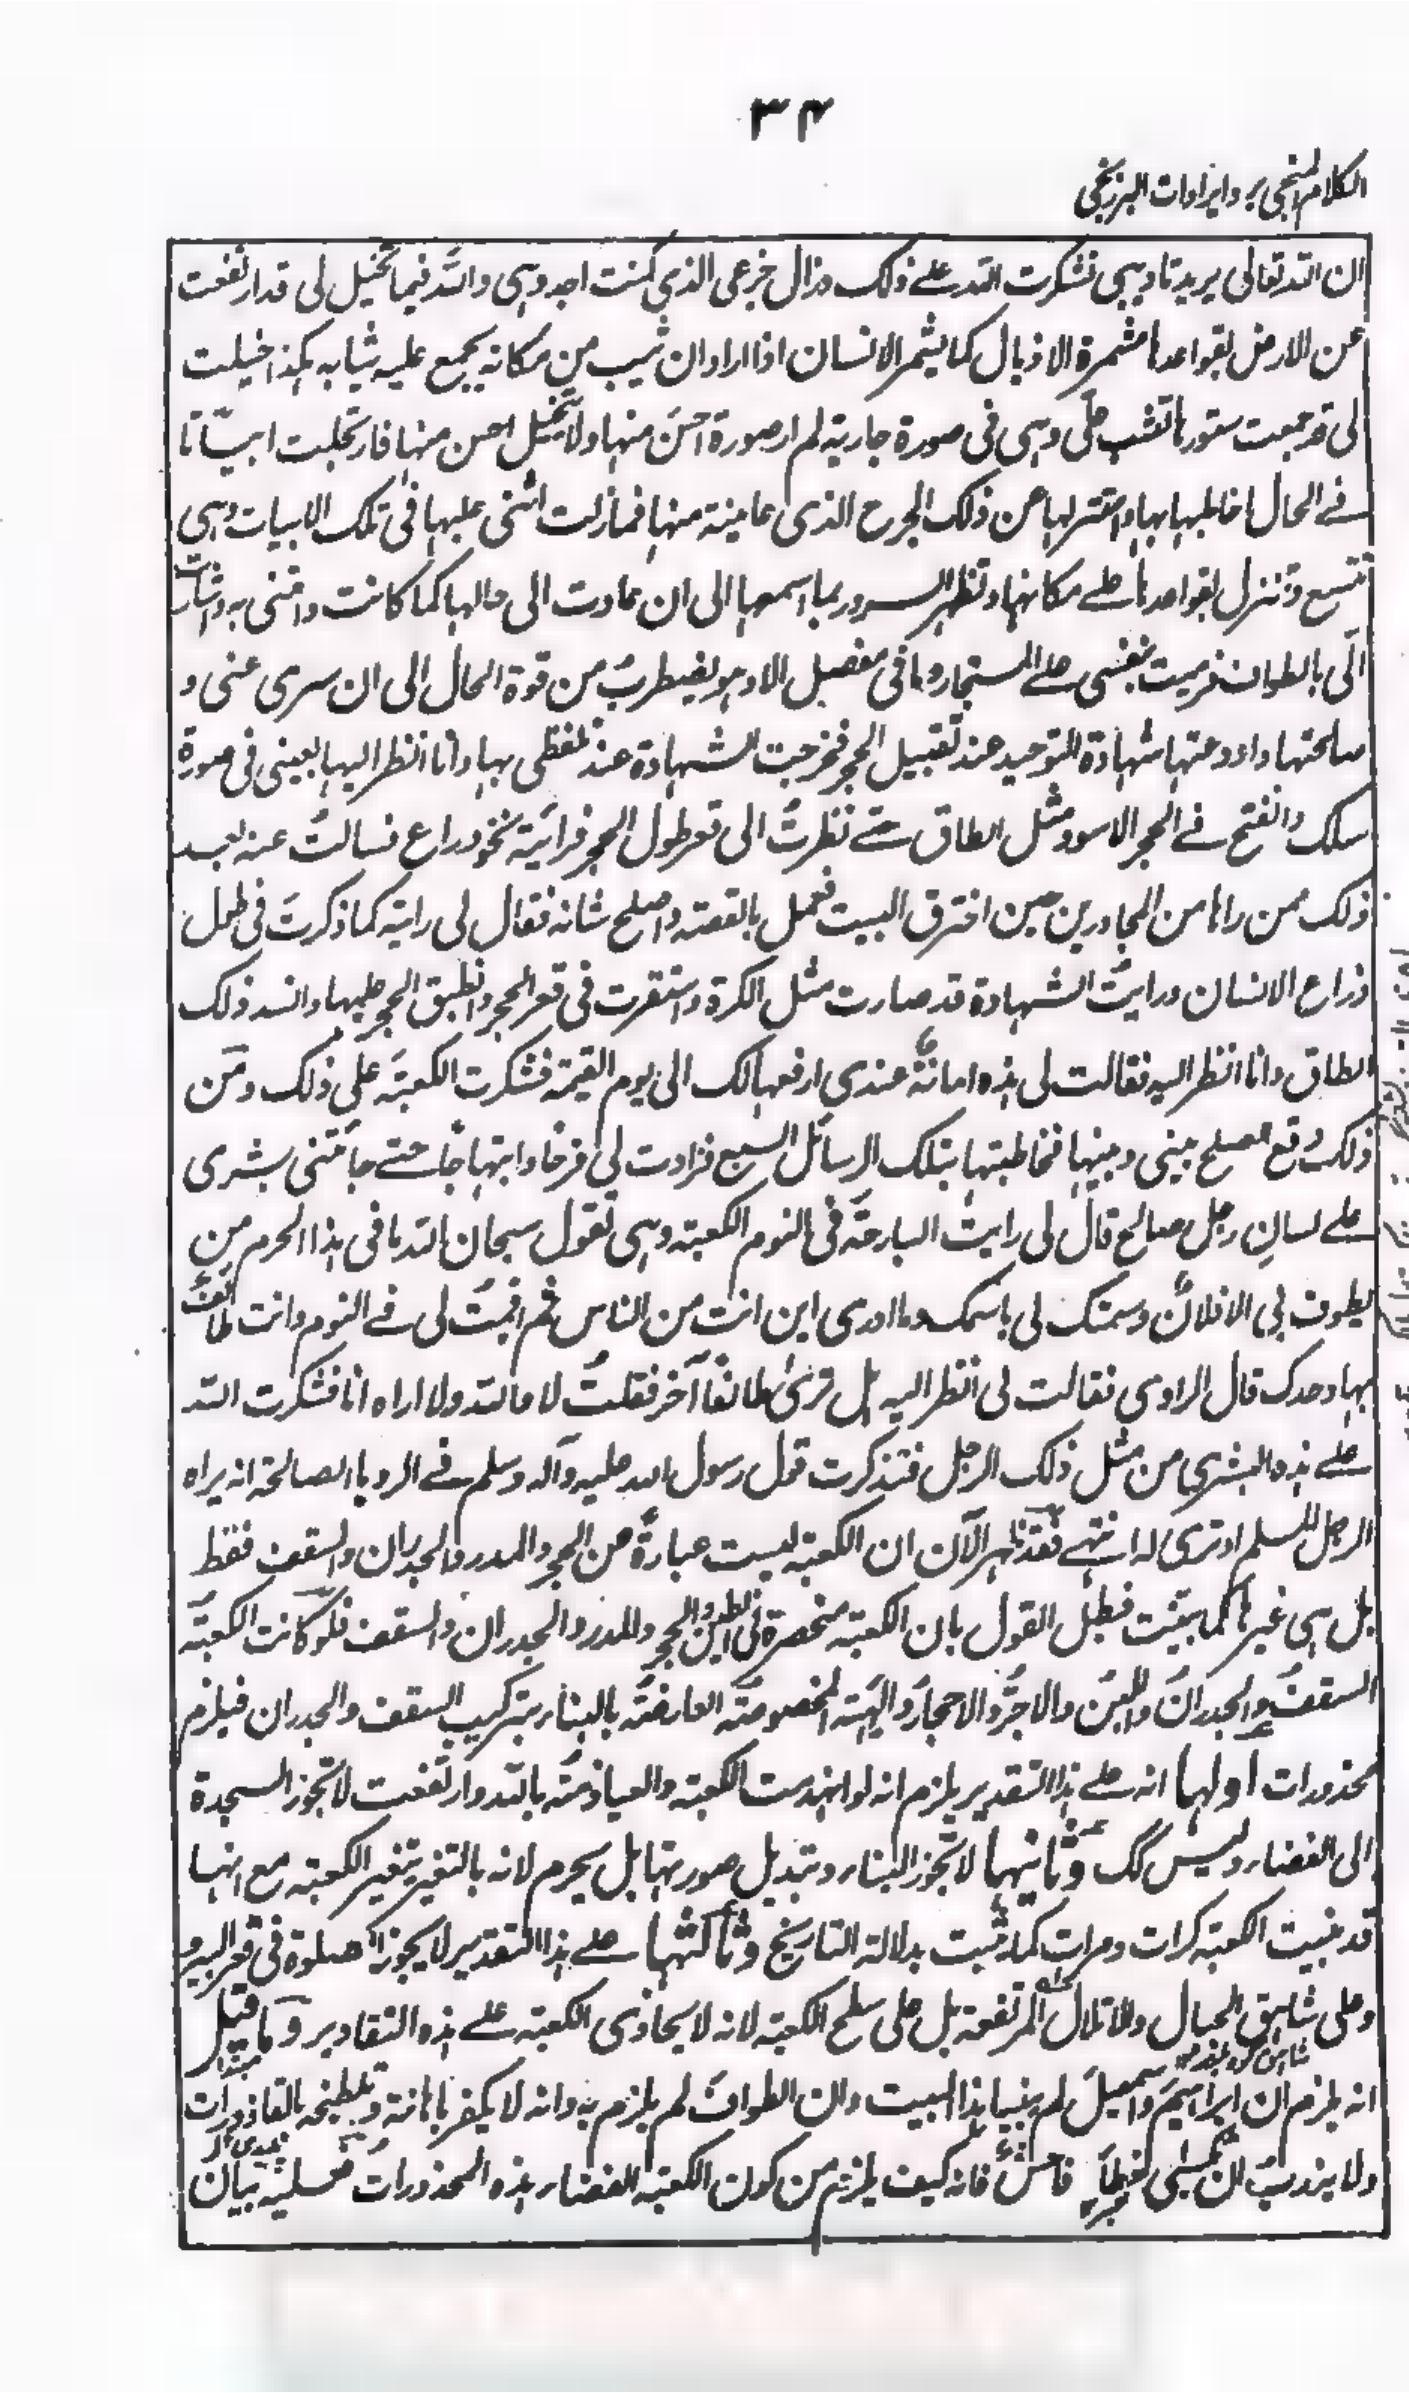 ۳۴
الكلام المنجى برد ايرادات البرزنجى
ان الله تعالى يريد تاديبى فشكرت الله على ذلك وزال جزعى الذى كنت اجد وهى والله فيما تخيل لى قد ارتفعت
عن الارض بقواعدها مشمرة الاذيال كما يشمر الانسان اذا اراد ان يثب من مكانه يجمع عليه ثيابه هكذا خيلت
لى قد جمعت ستورها لتثب على وهى فى صورة جارية لم ار صورة احسن منها ولا يتخيل احسن منها فارتجلت ابياتا
فى الحال اخاطبها بها واستنزلها عن ذلك الحرج الذى عاينته منها فما زلت اثنى عليها فى تلك الابيات وهى
تتسع وتنزل بقواعدها على مكانها وتظهر السرور بما اسمعها الى ان عادت الى حالها كما كانت وامنتنى واشارت
الى بالطواف فرميت بنفسى على المستجار وما فى مفصل الا وهو يضطرب من قوة الحال الى ان سرى عنى و
صالحتها واودعتها شهادة التوحيد عند تقبيل الحجر فخرجت الشهادة عند تلفظى بها وانا انظر اليها بعينى فى صورة
سلك وانفتح فى الحجر الاسود مثل الطاق حتى نظرت الى قعر طول الحجر فرايته نحو ذراع فسالت عنه بعد
ذلك من راها من المجاورين حين احترق البيت فعمل بالفضة واصلح شانه فقال لى رايته كما ذكرت فى طول
ذراع الانسان ورايت الشهادة قد صارت مثل الكرة واستقرت فى قعر الحجر وانطبق الحجر عليها وانسد ذلك
الطاق وانا انظر اليه فقالت لى هذه امانة عندى ارفعها لك الى يوم القيمة فشكرت الكعبة على ذلك ومن
ذلك وقع الصلح بينى وبينها فخاطبتها بتلك الرسائل السبع فزادت لى فرحا وابتهاجا حتى جاءتنى بشرى
على لسان رجل صالح قال لى رايت البارحة فى النوم الكعبة وهى تقول سبحان الله ما فى هذا الحرم من
يطوف بى الا فلان وسمتك لى باسمك وما ادرى اين انت من الناس ثم اقمت لى فى النوم وانت طائف
بها وحدك قال الراوى فقالت لى انظر اليه هل ترى طائفا آخر فقلت لا والله ولا اراه انا فشكرت الله
على هذه البشرى من مثل ذلك الرجل فتذكرت قول رسول الله عليه وآله وسلم فى الرويا الصالحة انه يراه
الرجل المسلم او ترى له انتهى فقد ظهر الآن ان الكعبة ليست عبارة من الحجر والمدر والجدران والسقف فقط
بل هى غيرها كما بينت فبطل القول بان الكعبة منحصرة فى الطين والحجر والمدر والجدران والسقف فلو كانت الكعبة
السقف والجدران واللبن والاجر والاحجار والهيئة المخصوصة العارضة بالبناء بتركيب السقف والجدران فيلزم
محذورات اولها انه على هذا التقدير يلزم انه لو انهدمت الكعبة والعياذ منه بالله وارتفعت لا تجوز السجدة
الى الفضاء وليس كك وثانيها لا تجوز البناء وتبديل صورتها بل يحرم لانه بالتغير يتغير الكعبة مع انها
قد بنيت الكعبة كرات ومرات كما ثبت بدلالة التاريخ وثالثها على هذا التقدير لا يجوز الصلوة فى قعر البير و
وعلى شاهق الجبال والاتلال المرتفعة بل على سطح الكعبة لانه لا يحاذى الكعبة على هذه التقادير وما قيل
انه يلزم ان ابراهيم واسمعيل لم يبنيا هذا البيت وان الطواف لم يلزم به وانه لا يكفر باهانته وتلطيخه بالقاذورات
ولا يزدب فاحش فانه كيف يلزم من كون الكعبة الفضاء هذه المحذورات بيان